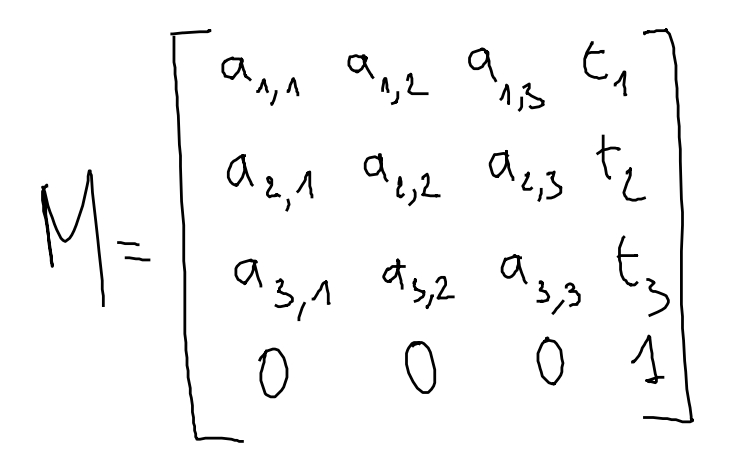 M = [ a₁,₁ a₁,₂ a₁,₃ t₁
a₂,₁ a₂,₂ a₂,₃ t₂
a₃,₁ a₃,₂ a₃,₃ t₃
0 0 0 1 ]